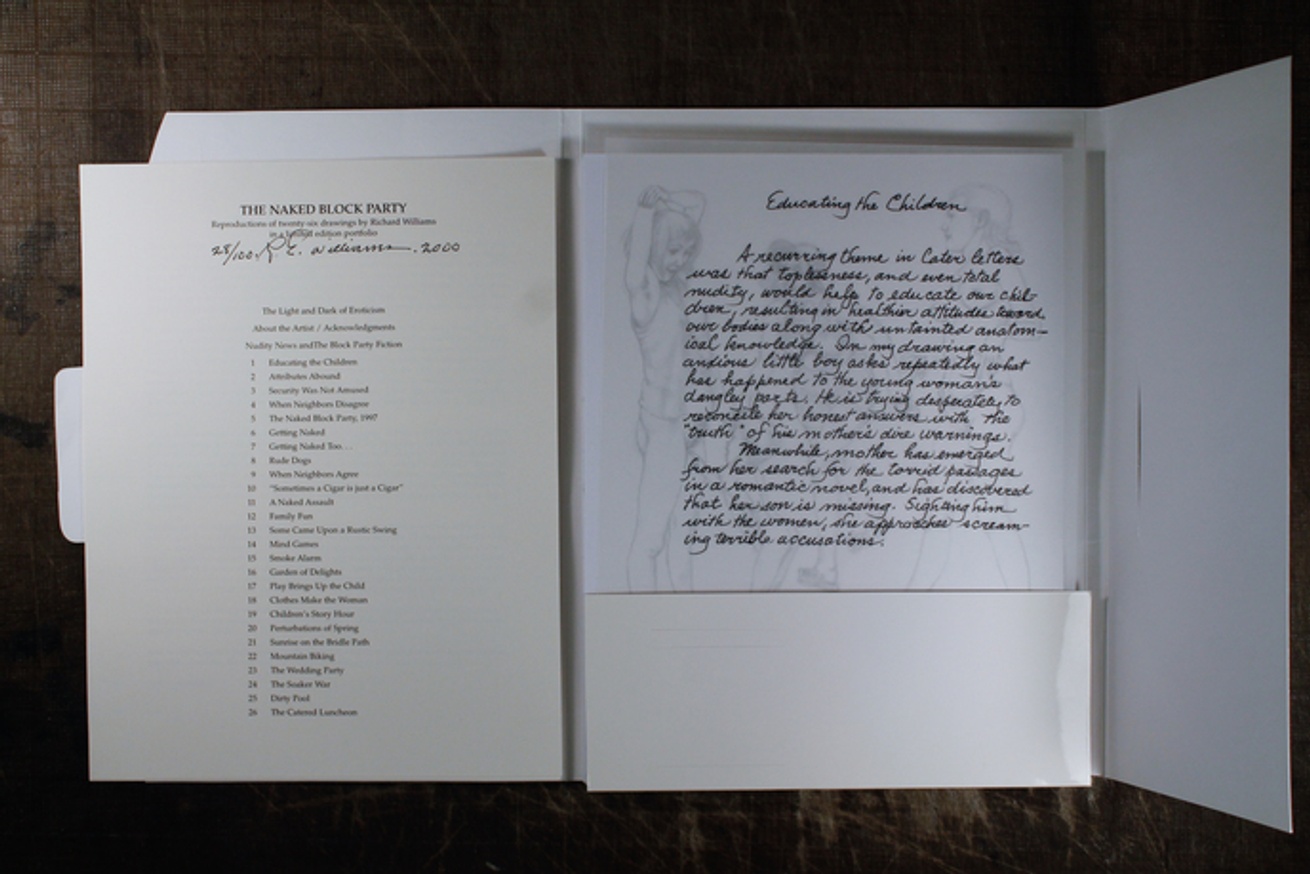 THE NAKED BLOCK PARTY
Reproductions of twenty-six drawings by Richard Williams
in a limited edition portfolio
28/100. R. E. Williams. 2000
The Light and Dark of Eroticism
About the Artist / Acknowledgments
Nudity News andThe Block Party Fiction
1 Educating the Children
2 Attributes Abound
3 Security Was Not Amused
4 When Neighbors Disagree
5 The Naked Block Party, 1997
6 Getting Naked
7 Getting Naked Too. . .
8 Rude Dogs
9 When Neighbors Agree
10 "Sometimes a Cigar is just a Cigar"
11 A Naked Assault
12 Family Fun
13 Some Came Upon a Rustic Swing
14 Mind Games
15 Smoke Alarm
16 Garden of Delights
17 Play Brings Up the Child
18 Clothes Make the Woman
19 Children's Story Hour
20 Perturbations of Spring
21 Sunrise on the Bridle Path
22 Mountain Biking
23 The Wedding Party
24 The Soaker War
25 Dirty Pool
26 The Catered Luncheon
Educating the Children
A recurring theme in later letters
was that toplessness, and even total
nudity, would help to educate our chil-
dren, resulting in healthier attitudes toward
our bodies along with untainted anatom-
ical knowledge. In my drawing an
anxious little boy asks repeatedly what
has happened to the young woman's
dangley parts. He is trying desperately to
reconcile her honest answers with the
"truth" of his mother's dire warnings.
Meanwhile, mother has emerged
from her search for the torrid passages
in a romantic novel, and has discovered
that her son is missing. Sighting him
with the women, she approaches scream-
ing terrible accusations.